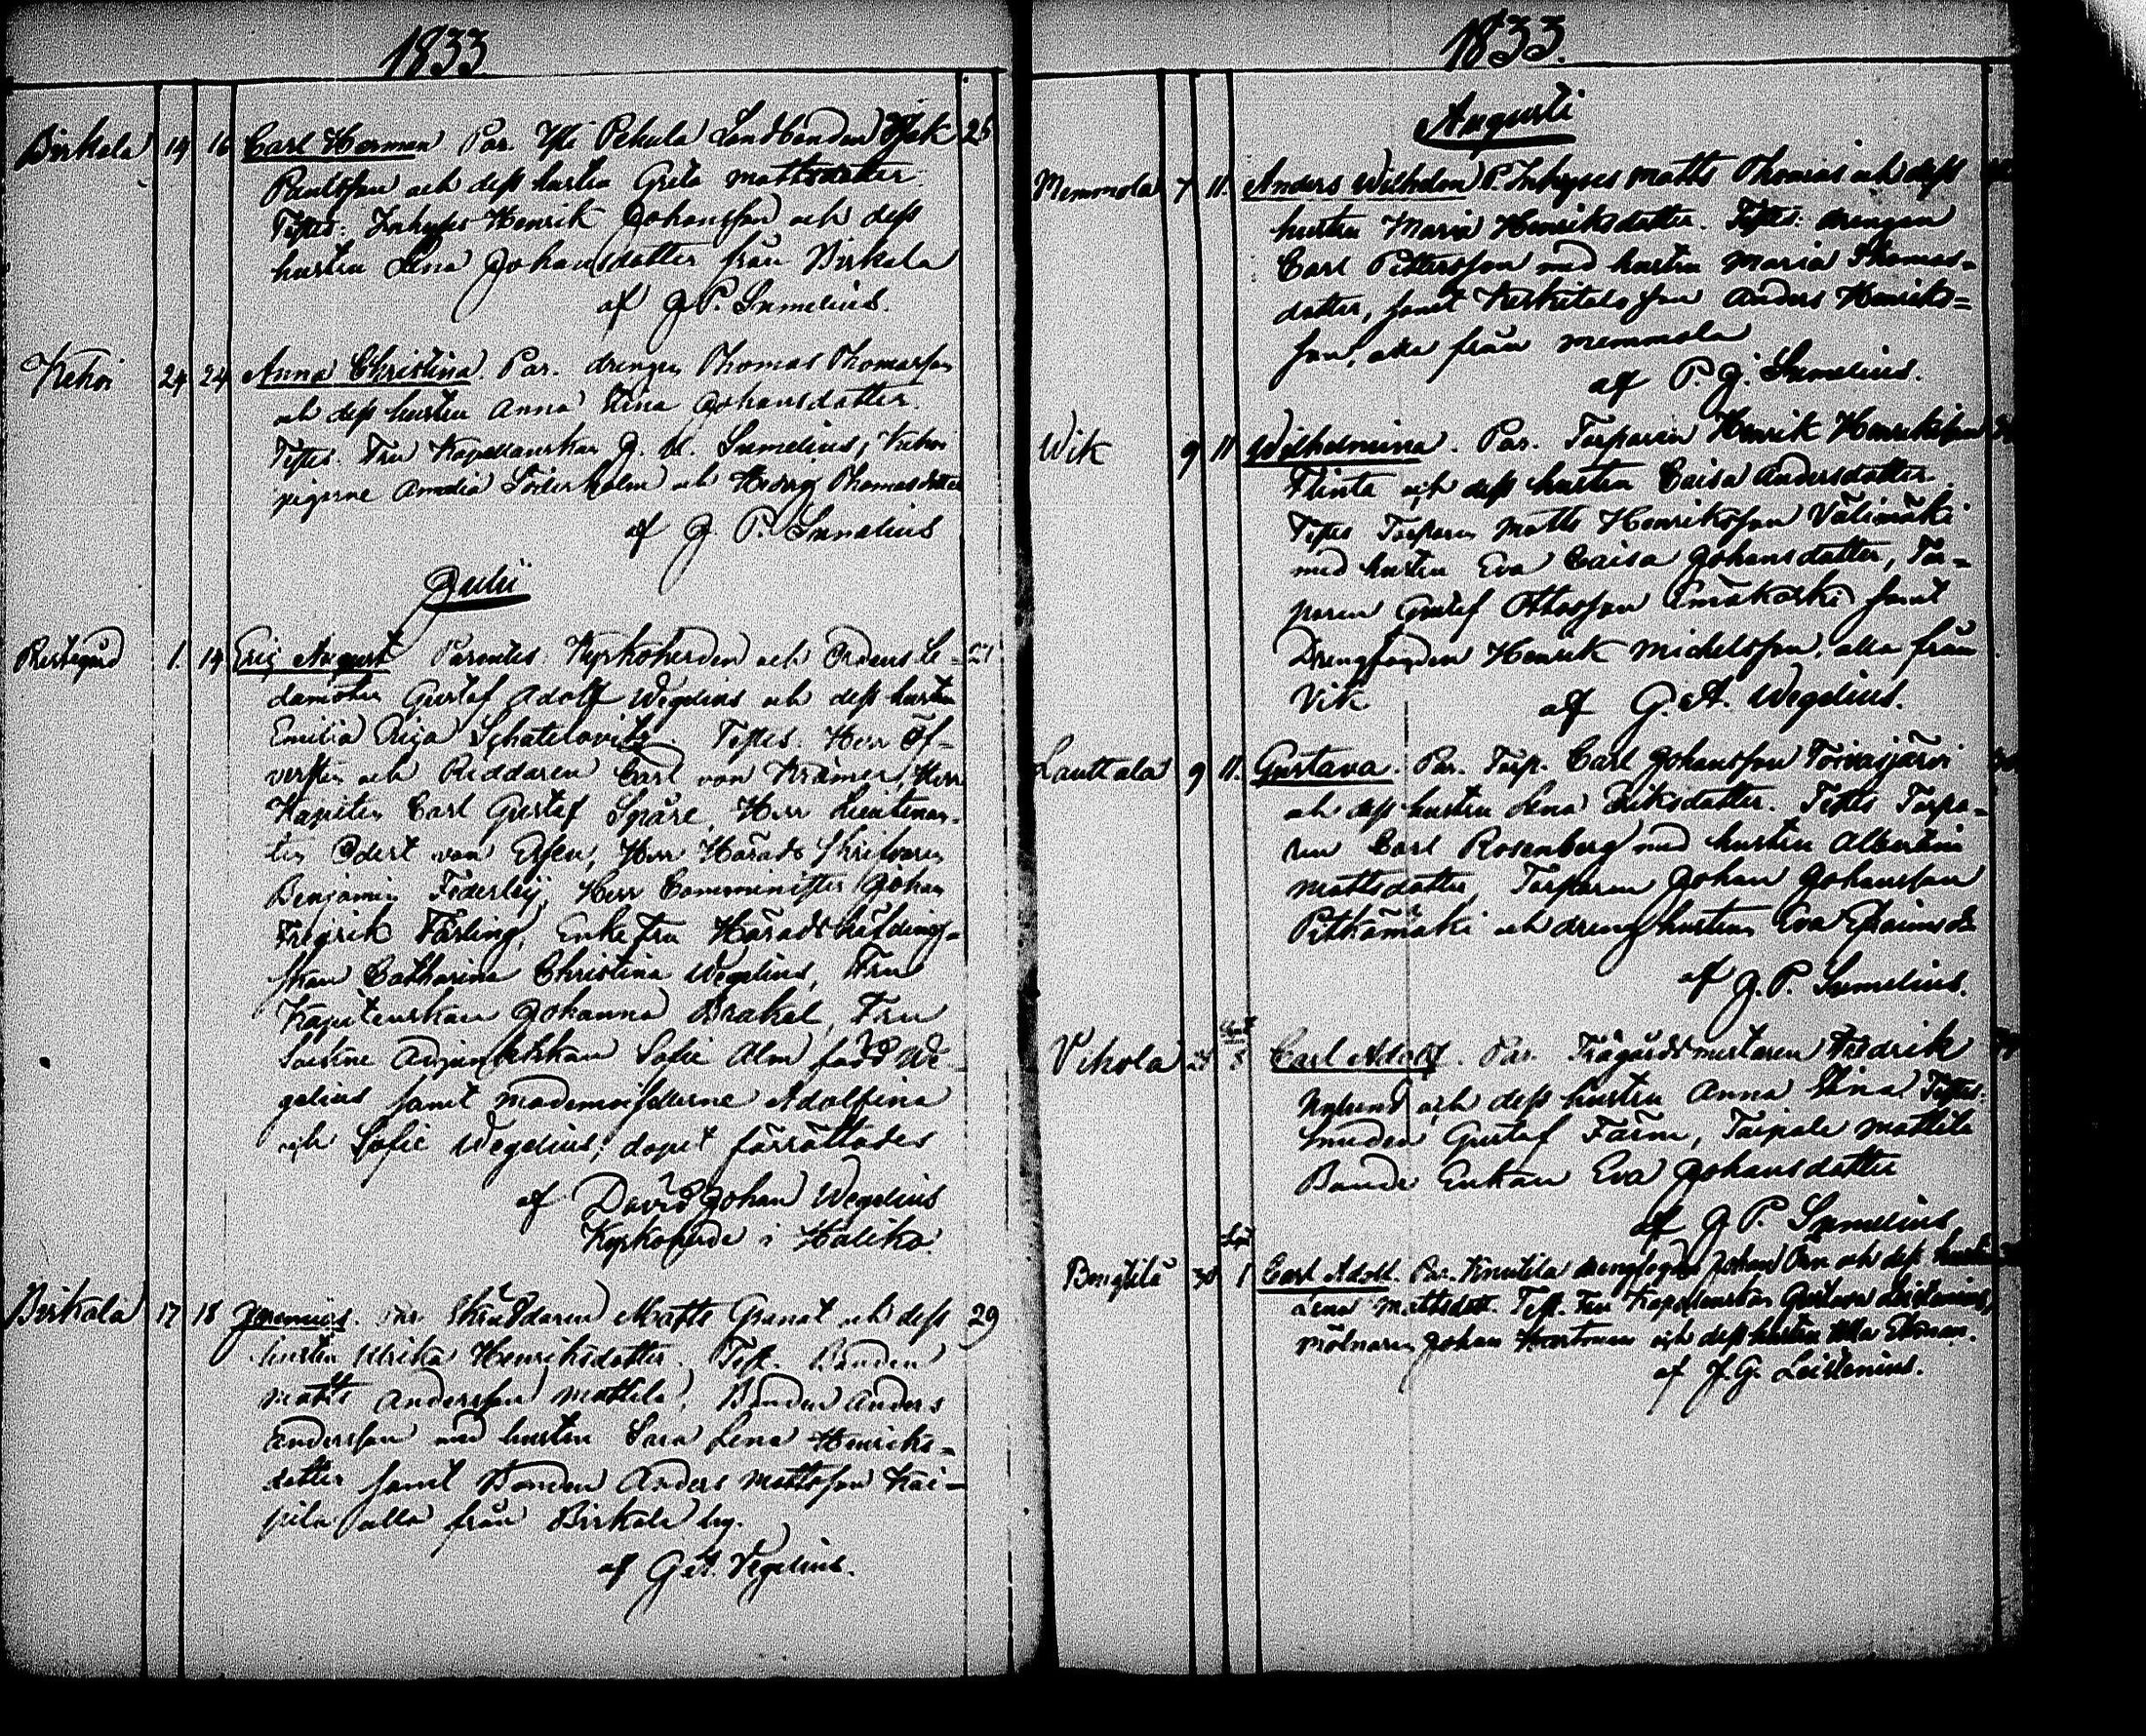 1833
Birkala 14 16 Carl Herman Par. Pehula Landbonden Isak 25
Paulsson och dess hustru Greta Mattsdotter.
Testes: Inhyses Henrik Johansson och dess
hustru Lena Johansdotter från Birkala
af G. P. Sumelius.
24 24 Anna Christina. Par. drengen Thomas Thomasson
och dess hustru Anna Stina Johansdotter.
Testes. Fru Kapellanskan Sumelius,
pigorne Amalia Söderholm och Hedvig Thomasdotter
af G. P. Sumelius
Julii
Prestegård 1. 14 Eric August Parentes. Kyrkoherden och Ordens Le-
damoten Gustaf Adolf Wegelius och dess hustru
Emilia. Testes. Herr Öf-
versten och Riddaren Carl von Kræmer, Herr
Kapiten Carl Gustaf Spåre, Herr Lieutenan-
ten Odert von Essen, Herr Härads Skrifvaren
Benjamin, Herr Comminister Johan
Fredrik Färling, Enkefru Häradshöfdings-
skan Catharina Christina Wegelius, Fru
Kapitenskan Johanna Brakel, Fru
Adjunktskan Sofie Alm född We-
gelius samt mademoisellerne Adolfina
och Sofie Wegelius; dopet förrättades
af David Johan Wegelius
Kyrkoherde i Haliko.
Birkala 17 18 Jeremias. Par Skräddaren Matts Granat och dess 29
hustru Ulrika Henriksdotter. Test. Bonden
Matts Andersson Mattila, Bonden Anders
Andersson med hustru Sara Lena Henriks-
dotter samt Bonden Anders Mattsson Kai-
pila alla från Birkala by.
af G. A. Wegelius.
1833.
Augusti
Memmola 7 11. Anders Wilhelm P. Inhyses Matts Thomas och dess
hustru Maria Henriksdotter. Testes. drengen
Carl Pettersson med hustru Maria Thomas-
dotter, samt Anders Henriks-
son, alla från Memmola
af P. G. Sumelius.
Wik 9 11 Wilhelmina. Par. Torparen Henrik Henriksson
Flinta och dess hustru Caisa Andersdotter.
Testes Torparen Matts Henriksson Välimäki
med hustru Eva Caisa Johansdotter, Tor-
paren Gustaf Ottosson samt
Drengfogden Henrik Michelsson, alla från
Vik
af G. A. Wegelius.
Lauttala 9 11. Gustava. Par. Torp. Carl Johansson Toivasjärvi
och dess hustru Lena Eriksdotter. Testes Torpa-
ren Carl Rosenberg med hustru Albertina
Mattsdotter, Torparen Johan Johansson
Pitkämäki och drenghustrun Eva
af G. P. Sumelius.
Vihola Carl Adolf. Par. Trägårdsmästaren Fredrik
och dess hustru Anna Stina Testes.
Gustaf Färm, Taipale Mattila
Bonde Enkan Eva Johansdotter
af G. P. Sumelius
Sept
Bengtilä 30 1 Carl Adolf. Par. Knutila drengfogden Johan och dess hustru
Lena Mattsdott. Test. Fru Kapellanskan Gustava Leistenius,
mölnaren Johan och dess hustru Ulla Ekman.
af J. G. Leistenius.